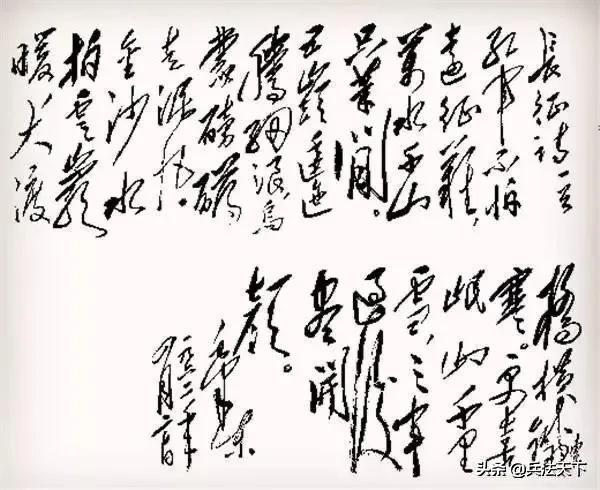 長征詩一首
紅軍不怕
遠征難，
萬水千山
只等閒。
五嶺逶迤
騰細浪，烏
蒙磅礴
走泥丸。
金沙水
拍雲巖
暖，大渡
橋橫鐵索
寒。更喜
岷山千里
雪，三軍
過後
盡開
顏。
毛澤東
一九六二年
头条 @兵法天下